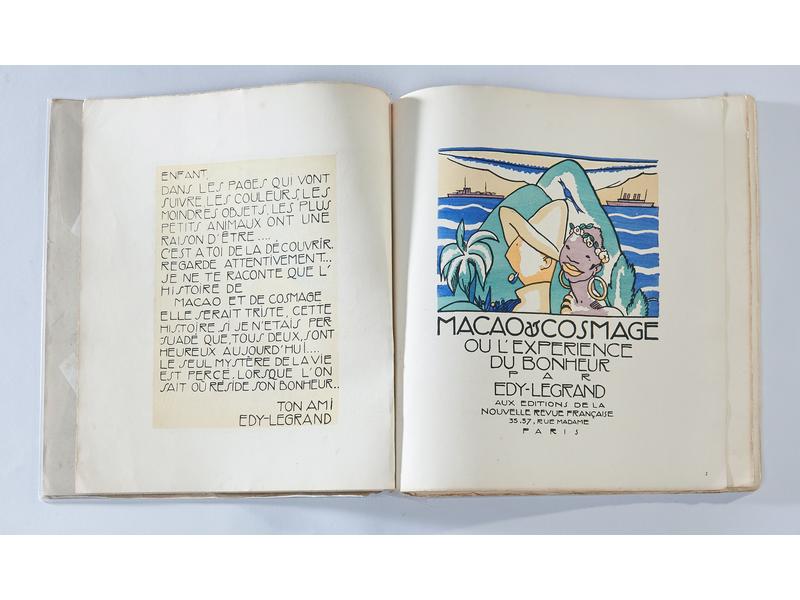 ENFANT,
DANS LES PAGES QUI VONT
SUIVRE LES COULEURS, LES
MOINDRES OBJETS, LES PLUS
PETITS ANIMAUX ONT UNE
RAISON D'ÊTRE....
C'EST A TOI DE LA DÉCOUVRIR.
REGARDE ATTENTIVEMENT...
JE NE TE RACONTE QUE L'
HISTOIRE DE
MACAO ET DE COSMAGE
ELLE SERAIT TRISTE, CETTE
HISTOIRE, SI JE N'ETAIS PER-
SUADÉ QUE, TOUS DEUX, SONT
HEUREUX AUJOURD'HUI....
LE SEUL MYSTÈRE DE LA VIE
EST PERCÉ, LORSQUE L'ON
SAIT OÙ RÉSIDE SON BONHEUR..
TON AMI
EDY-LEGRAND
MACAO & COSMAGE
OU L'EXPERIENCE
DU BONHEUR
PAR
EDY-LEGRAND
AUX EDITIONS DE LA
NOUVELLE REVUE FRANÇAISE
35.37, RUE MADAME
PARIS